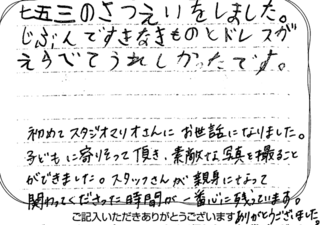 七五三のさつえいをしました。
じぶんですきなきものとドレスが
えらべてうれしかったです。
初めてスタジオマリオさんにお世話になりました。
子どもに寄りそって頂き、素敵な写真を撮ること
ができました。スタッフさんが親身になって
関わってくださった時間が一番心に残っています。
ご記入いただきありがとうございます ありがとうございました。